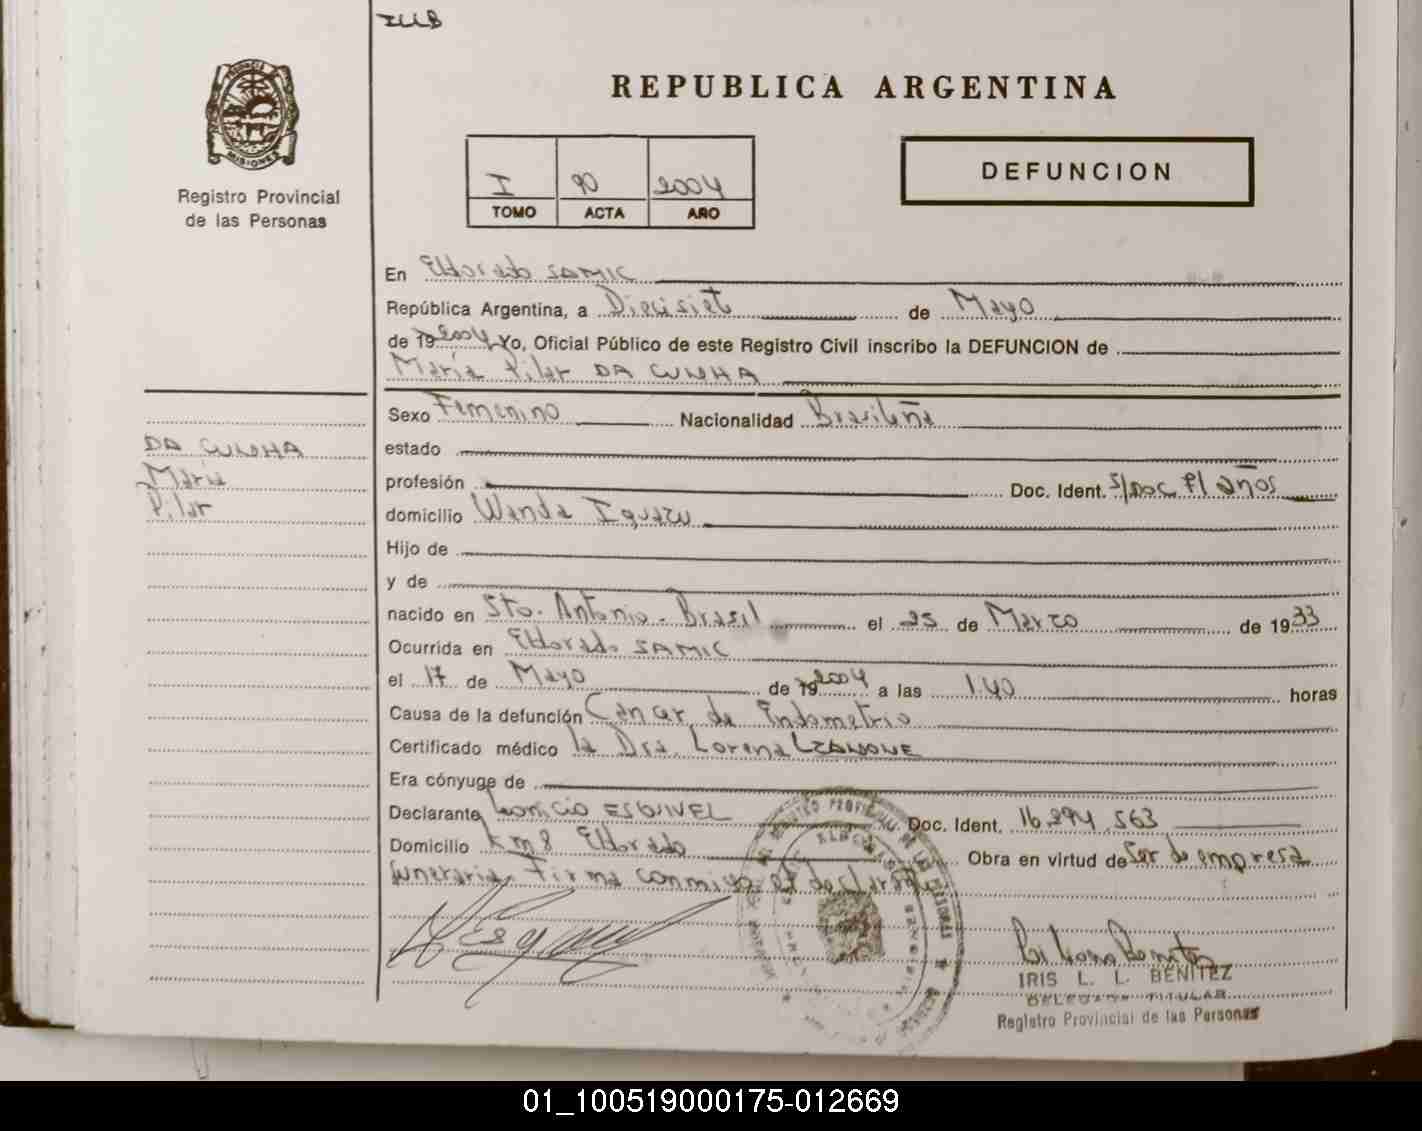 ILLB
REPUBLICA ARGENTINA
PROVINCIA DE
MISIONES
Registro Provincial
de las Personas
I 90 2004
TOMO ACTA AÑO
DEFUNCION
En Eldorado SAMIC
República Argentina, a Diecisiete de Mayo
de 19 2004 Yo, Oficial Público de este Registro Civil inscribo la DEFUNCION de
María Pilar DA CUNHA
DA CUNHA
María
Pilar
Sexo Femenino Nacionalidad Brasileña
estado
profesión Doc. Ident. S/DOC P/ años
domicilio Wanda Iguazu
Hijo de
y de
nacido en Sto. Antonio - Brasil el 25 de Marzo de 1933
Ocurrida en Eldorado SAMIC
el 17 de Mayo de 19 2004 a las 1.40 horas
Causa de la defunción Cancer de Endometrio
Certificado médico la Dra. Lorena
Era cónyuge de
Declarante ESQUIVEL Doc. Ident. 16.294.563
Domicilio Km 8 Eldorado Obra en virtud de Ser de empresa
funeraria. Firma conmigo el declarante
IRIS L. L. BENITEZ
DELEGADA TITULAR
Registro Provincial de las Personas
01_100519000175-012669